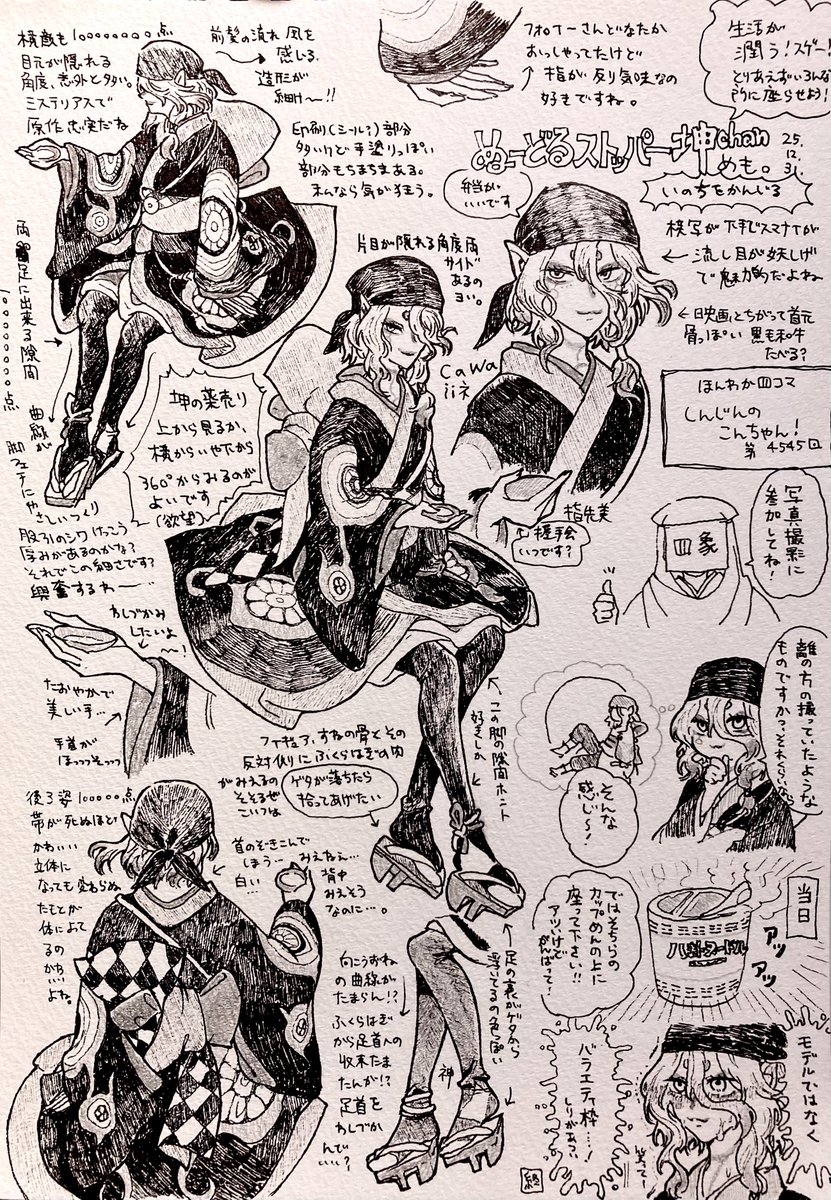 横敵も1000000点
目元が隠れる
角度、意外と多い。
ミステリアスで
原作忠実だね
前髪の流れ 風を
感じる。
造形が
細け〜!!
フォロワーさんどなたか
おっしゃってたけど
↑指が反り気味なの
好きですね。
生活が
潤う!スゲー!
とりあえずいろんな
所に座らせよう!
印刷(シール?)部分
多いけど手塗りっぽい
部分もちまちまある。
こんなら気が狂う。
ぬーどるストッパー坤chan
めも。
25.
12.
31.
弁当が
いいです
いのちをかんじる
模写が下手でスマナイが
← 流し目が妖しげ
で魅力的だよね
←映画とちがって首元
骨っぽい 黒毛和牛
たべる?
片目が隠れる角度両
サイド
あるの
ヨい。
Cawa
iiネ
両足に出来る隙間
1000000点
曲線が
脚フェチにやさしいつくり
坤の薬売り
上から見るか、
横からいや下から
360°からみるのが
よいです
(欲望)
股引のシワけっこう
厚みがあるのかな?
それでこの細さです?
興奮するわ〜
指先美
↑握手会
いつです?
ほんわか四コマ
しんじんの
こんちゃん!
第4545回
写真撮影に
参加してね!
四象
わしづかみ
したいよ
〜!
たおやかで
美しい手…
手首が
ほっっそっっ
フィギュア、すねの骨とその
反対側にふくらはぎの肉
がみえるの
そそるぜ
こいつは
ゲタが落ちたら
拾ってあげたい
この脚の隙間ホント
好きしか
離の方の撮っていたような
ものですかっ、それくらいなら
そんな
感じ〜!
後ろ姿100000点
帯が死ぬほど
かわいい
立体に
なっても変わらぬ
たもとが
体によって
るの
かわいい
よね。
首のぞきこんで
しまう…
白い…
みえねえ…
背中
みえそう
なのに…。
当日
ではそちらの
カップめんの上に
座って下さい!!
アツいけで
がんばって!
アッ
アッ
向こうずね
の曲線が
たまらん!?
ふくらはぎ
から足首への
収束たま
たんが!?
足首を
わしづか
んで
いい…?
神
足の裏がゲタから
浮いてるの色っぽい
モデルではなく
バラエティ枠…!
終